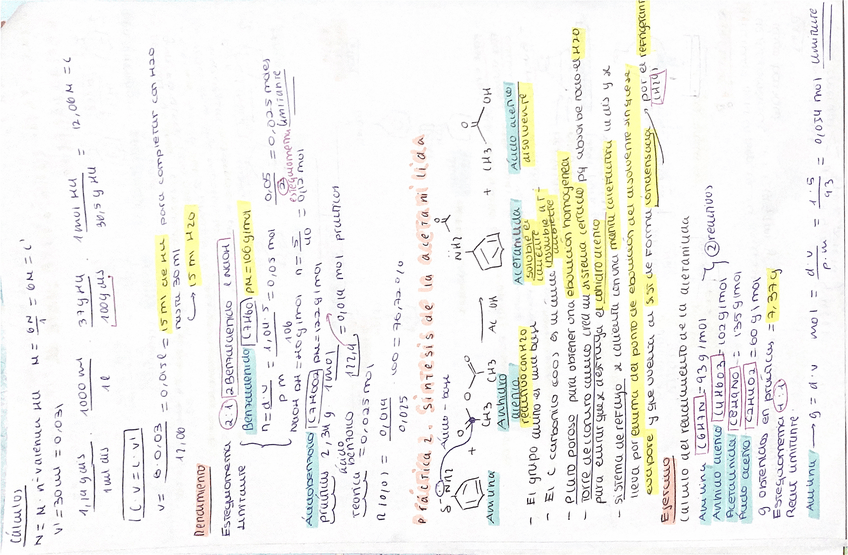 Cálculos
N = M · n-valencia HCl   M = 6N/1 = 6M = C'
V' = 30 ml = 0,03 l
1,19 g dis / 1 ml dis · 1000 ml / 1 l · 37 g HCl / 100 g dis · 1 mol HCl / 36,5 g HCl = 12,06 M = C
C · V = C' · V'
V = 6 · 0,03 / 12,06 = 0,015 l = 15 ml de HCl para completar con H2O
hasta 30 ml
→ 15 ml H2O
Rendimiento
Estequiometría 2:1 2 Benzaldehído 1 NaOH
Limitante
Benzaldehído (C7H6O) PM = 106 g/mol
n = d·v / pm = 1,04·5 / 106 = 0,05 mol   0,05 / 2 = 0,025 moles
limitante
estequiometría
NaOH PM = 40 g/mol n = 5 / 40 = 0,12 mol
Ácido benzoico (C7H6O2) PM = 122 g/mol
práctica 2,31 g 1 mol / 122 g = 0,019 mol prácticos
ácido benzoico
teórica = 0,025 mol
R (%) = 0,019 / 0,025 · 100 = 76,72 %
Práctica 2. Síntesis de la acetanilida
δ- NH2 Ácido-base
+ CH3 CH3 → AcOH NH2 + CH3 OH
Anilina Anhidro acético Acetanilida Ácido acético
reactivo con H2O disolvente
- El grupo amino es una base
- El C carbonilo
- Plato poroso para obtener una ebullición homogénea
- Torre de cloruro cálcico crea un sistema cerrado pq absorbe todo el H2O
para evitar que destruya el anhidro acético
- Sistema de reflujo se calienta con una manta calefactora
lleva por encima del punto de ebullición del disolvente
evapore y que vuelva al SR de forma condensada, por el refrigerante
(H2O)
Ejercicio
Cálculo del rendimiento de la acetanilida
Anilina (C6H7N) = 93 g/mol
Anhidro acético (C4H6O3) 102 g/mol
2 reactivos
Acetanilida (C8H9NO) = 135 g/mol
Ácido acético (C2H4O2) = 60 g/mol
g obtenidos en prácticas = 7,37 g
Estequiometría 1:1
React limitante
Anilina → g = d·v   mol = d·v / p.m = 1·5 / 93 = 0,054 mol limitante